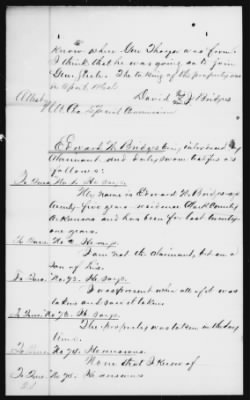 know where Gen Thayer was from
I think that he was going on to join
Gen Steele. The taking of the property was
in April 1864.
David J Bridges
Attest
Special Commissioner
Edward W Bridges being introduced by
Claimant and duly sworn testifies as
follows:
To Ques No 1. He says:
My name is Edward W Bridges age
twenty five years residence Clark County
Arkansas and has been for last twenty
one years.
To Ques No 2 He says.
I am not the claimant, but am a
son of his.
To Ques No 72. He says.
I was present when all of it was
taken and saw it taken
To Ques No 73. He says.
The property was taken in the day
time.
To Ques No 74. He answers.
None that I know of
To Ques No 75. He answers